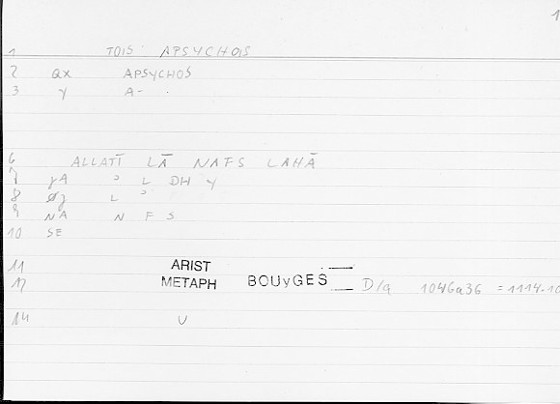 1
1 TOIS APSYCHOIS
2 QX APSYCHOS
3 Y A-
6 ALLATĪ LĀ NAFS LAHĀ
7 yA ʾ L DH Y
8 Øz L ʾ
9 NA N F S
10 SE
11 ARIST
12 METAPH BOUyGES D/a 1046a36 = 1114.10
14 U